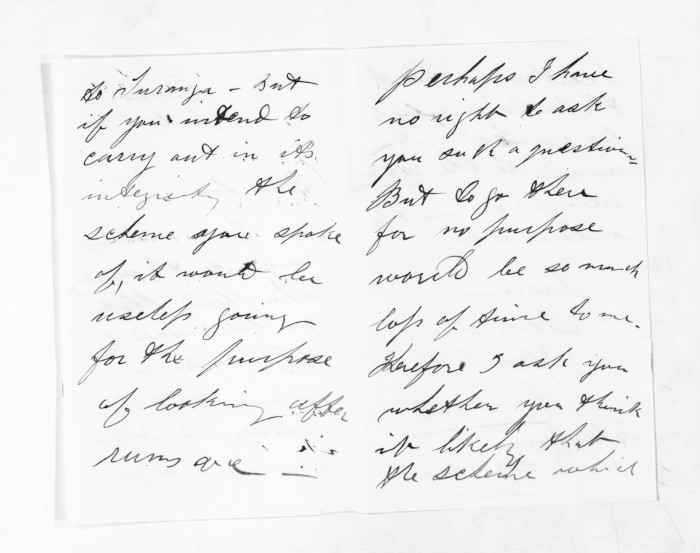 to Turanga - But
if you intend to
carry out in its
integrity the
scheme you spoke
of, it would be
useless going
for the purpose
of looking after
runs
Perhaps I have
no right to ask
you such a question
But to go there
for no purpose
would be so much
loss of time to me.
Therefore I ask you
whether you think
it likely that
the scheme which